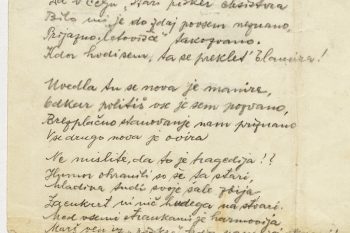 Za v čaju, stari pisker eksistira
Bilo mi je do zdaj povsem neznano,
Prijazno „letovišče" takozvano.
Kdor hodi sem, ta se preklet blamira!

Uvedla tu se nova je manira,
Odkar politiš vse je sem pozvano,
Brezplačno stanovanje nam priznano
Vse drugo nova je ovira

Ne mislite, da to je tragedija!?
Humor ohranili so se ta stari,
Mladina tudi svoje šale zbija,
Zagenkrat ni nič hudega na stvari.
Med vsemi strankami je harmonija